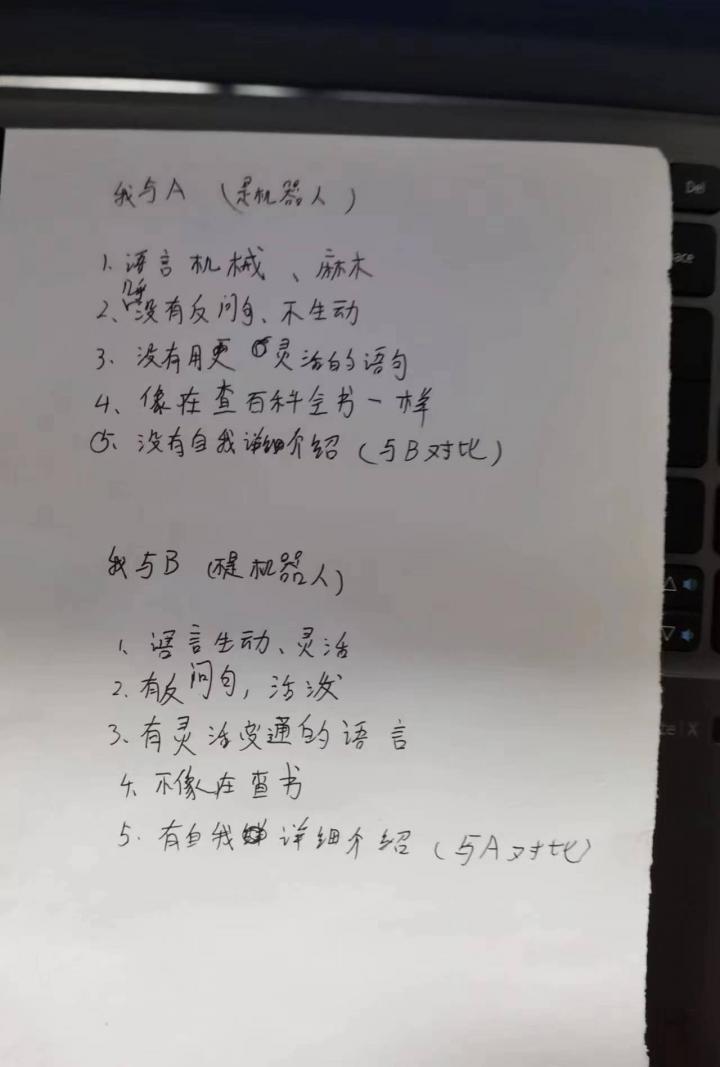 我与A (是机器人)
1. 语言机械、麻木
2、没有反问句、不生动
3、没有用更灵活的语句
4、像在查百科全书一样
5、没有自我详细介绍(与B对比)
我与B (不是机器人)
1、语言生动、灵活
2、有反问句，活泼
3、有灵活变通的语言
4、不像在查书
5、有自我详细介绍(与A对比)
Del